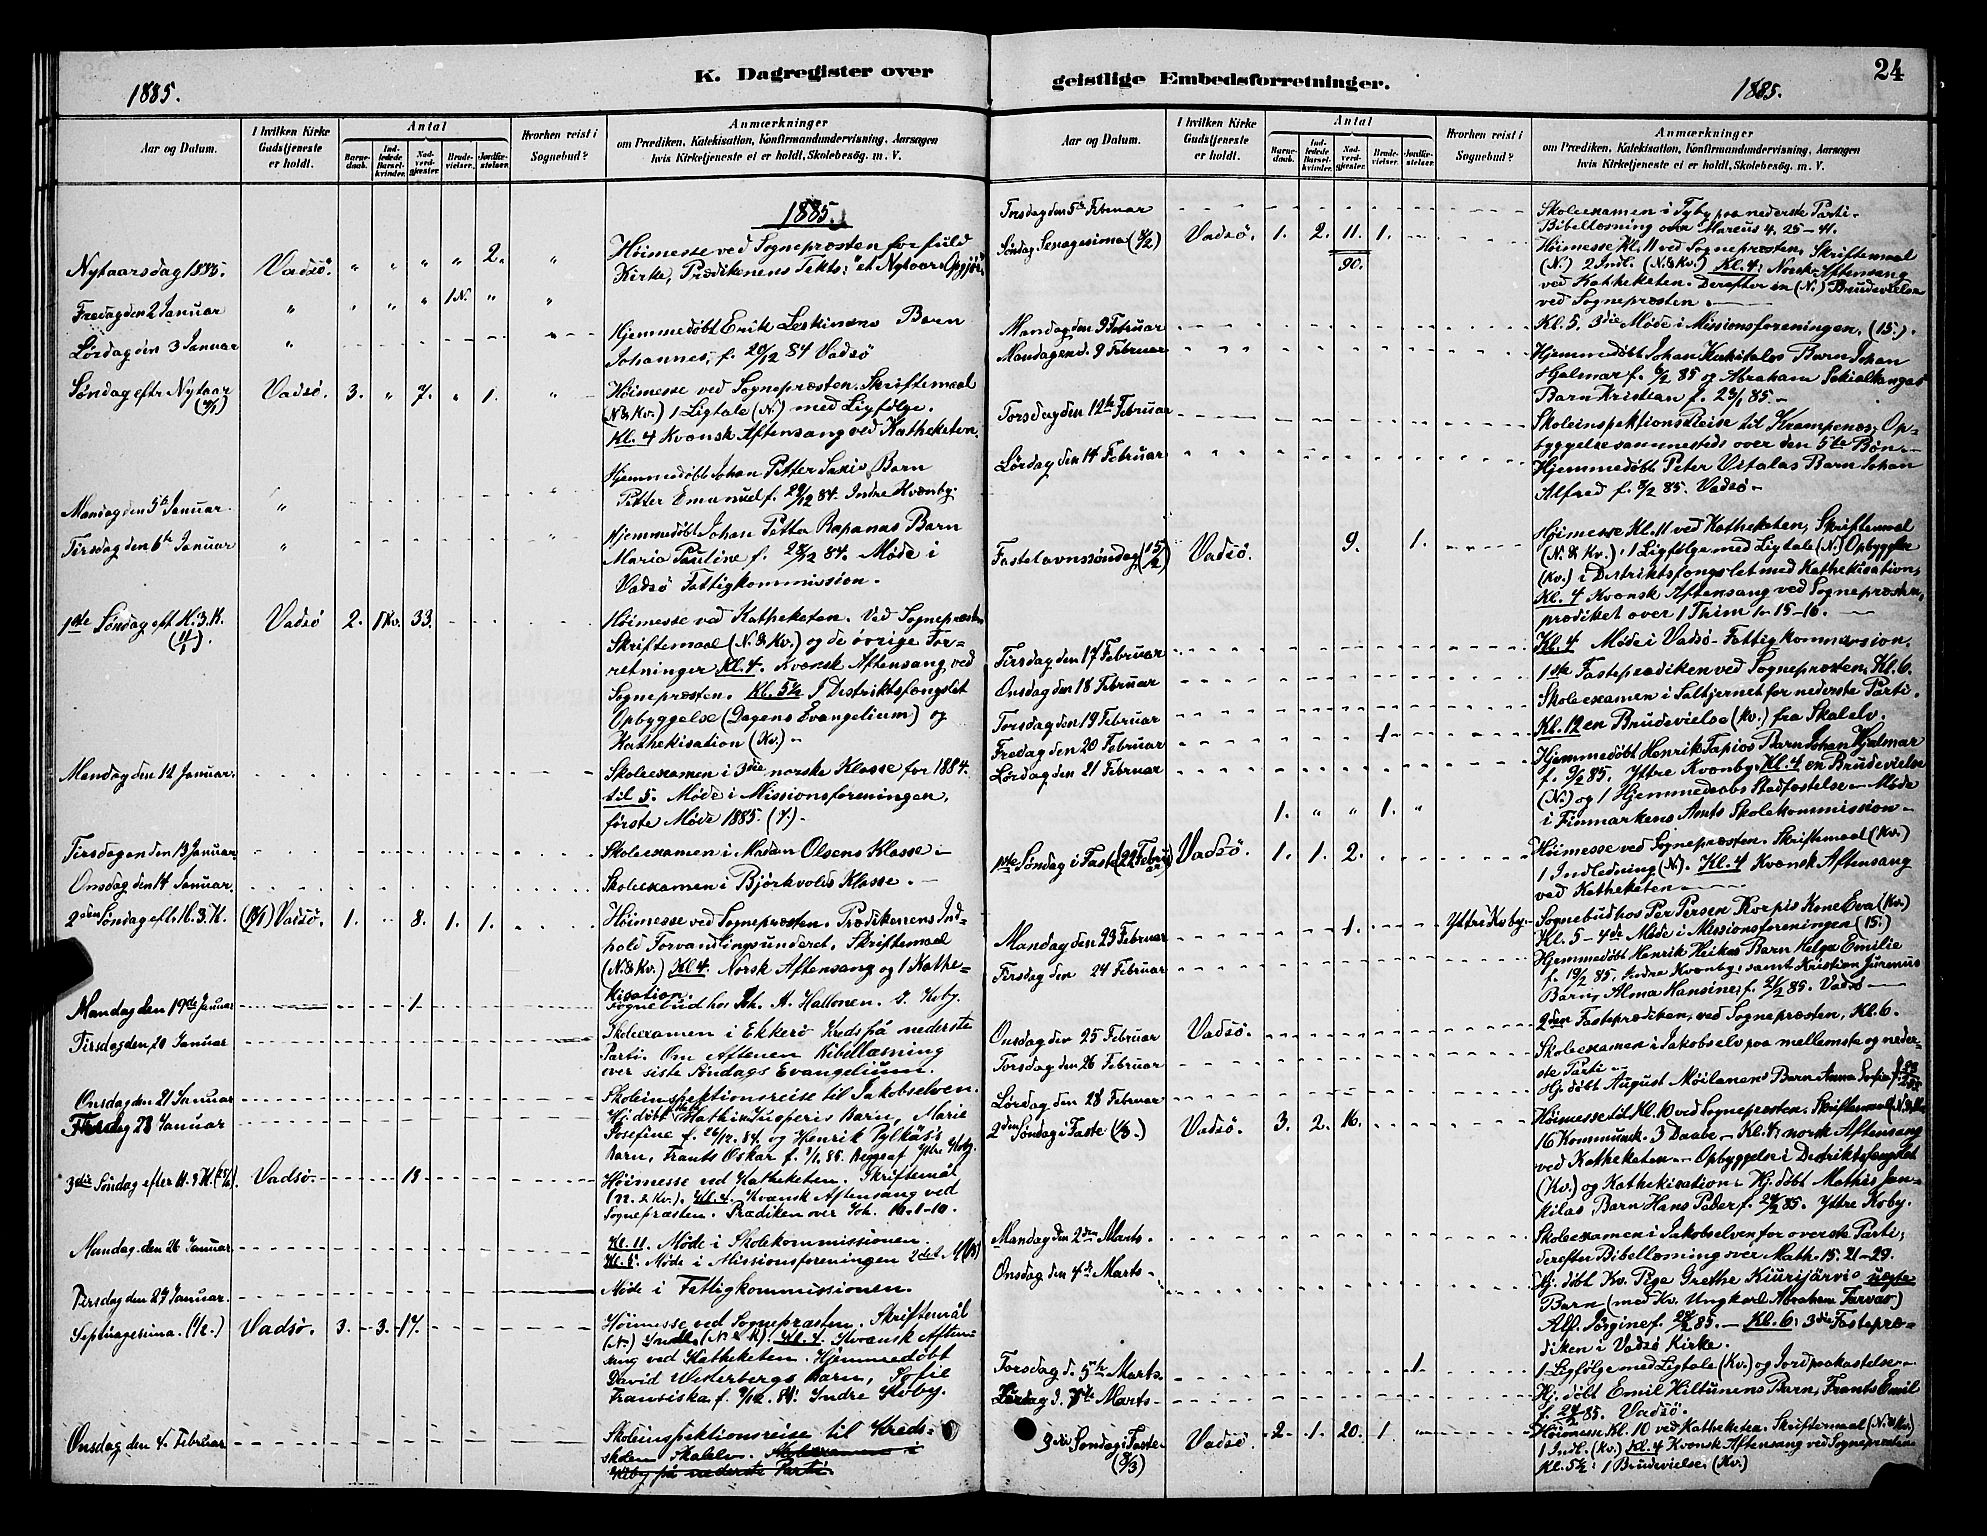 K. Dagregister over
1885.
Aar og Datum.
I hvilken Kirke
Gudstjeneste
er holdt.
Antal
Barne-
daab.
Ind-
ledede
Barsel-
kvinder.
Nad-
verd-
gjester
Brude-
vielser.
Jordfæ-
stelser.
Hvorhen reist i
Sognebud?
Anmærkninger
om Prædiken, Katekisation, Konfirmandundervisning, Aarsagen
hvis Kirketjeneste ei er holdt, Skolebesøg. m. V.
1885.
Nytaarsdag 1885. Vadsø. " " " " 2. " Høimesse ved Sognepræsten for fuld
Kirke, Prædikenens Tekst: "et Nytaars Opgjør"
Fredag den 2 Januar " " " " 1 N. " "
Lørdag den 3 Januar " Hjemmedøbt Erik Leskinens Barn
Johannes, f. 20/12 84 Vadsø
Søndag eftr Nytaar (4/1) Vadsø. 3. " 7. " 1. " Høimesse ved Sognepræsten. Skriftemaal
(N & Kv.) 1 Ligtale (N.) med Ligfølge.
Kl. 4 Kvensk Aftensang ved Katheketen.
Mandag den 5te Januar. " Hjemmedøbt Johan Petter Barn
Petter Emanuel f. 29/12 84. Indre Kvænby.
Tirsdag den 6te Januar " Hjemmedøbt Johan Petter Rapanas Barn
Maria Pauline f. 28/12 84. Møde i
Vadsø Fattigkommission.
1ste Søndag eft H. 3. K. (11/1). Vadsø 2. 1 Kv. 33. Høimesse ved Katheketen. Ved Sognepræsten
Skriftemaal (N. & Kv.) og de øvrige For-
retninger Kl. 4. Kvensk Aftensang ved
Sognepræsten. Kl. 5½ I Distriktsfængslet
Opbyggelse (Dagens Evangelium) og
Kathekisation (Kv.) -
Mandag den 12 Januar. Skoleexamen i 3die norske Klasse for 1884.
til 5. Møde i Missionsforeningen,
første Møde 1885. (7.) -
Tirsdagen den 13 Januar. Skoleexamen i Madam Olsens Klasse -
Onsdag den 14 Januar. Skoleexamen i Bjørkvolds Klasse. -
2den Søndag eft. H. 3. K. (18/1) Vadsø. 1. " 8. 1. 1. Høimesse ved Sognepræsten. Prædikenens Ind-
hold Forvandlingsunderet. Skriftemaal
(N. & Kv.) Kl 4. Norsk Aftensang og 1 Kathe-
kisation.
Mandag den 19de Januar 1. Sognebud hos Joh. A. Hallonen. I. Kvby.
Tirsdag den 20 Januar Skoleexamen i Ekkerø Kreds på nederste
Parti. Om Aftenen Bibellæsning
over siste Søndags Evangelium.
Onsdag den 21 Januar Skoleinspektionsreise til Jakobselven.
23 Januar Hj.døbt Barn, Marie
Josefine f. 26/12. 84. og Henrik Pylkäs's
Barn, Frants Oskar f. 1/1. 85. Begge af Ytre Kvby.
3die Søndag efter H. 3 K. (25/1). Vadsø. 18 Høimesse ved Katheketen. Skriftemål
(N. & Kv.). Kl. 4. Kvænsk Aftensang ved
Sognepræsten. Prædiken over Joh. 10. 1-10.
Mandag. den 26 Januar Kl. 11. Møde i Skolekommissionen.
Kl. 5. Møde i Missionsforeningen 2det M
Tirsdag den 27 Januar. Møde i Fattigkommissionen.
Septuagesima. (1/2.) Vadsø. 3. 3. 17. Høimesse ved Sognepræsten. Skriftemål
(N.) Indl. (N & K). Kl. 4. Kvænsk Aften-
sang ved Katheketen. Hjemmedøbt
David Wederbergs Barn, Sofie
Fransiska f. 9/12. 84. Indre Kvby.
Onsdag den 4. Februar Skoleinspektionsreise til Kreds-
skolen Skalelv. Skoleexamen i
Kiby på nederste Parti
geistlige Embedsforretninger.
1885.
24
Aar og Datum.
I hvilken Kirke
Gudstjeneste
er holdt.
Antal
Barne-
daab.
Ind-
ledede
Barsel-
kvinder.
Nad-
verd-
gjester
Brude-
vielser.
Jordfæ-
stelser.
Hvorhen reist i
Sognebud?
Anmærkninger
om Prædiken, Katekisation, Konfirmandundervisning, Aarsagen
hvis Kirketjeneste ei er holdt, Skolebesøg. m. V.
Torsdag den 5te Februar Skoleexamen i paa nederste Parti.
Bibellæsning over Marcus 4. 25-41.
Søndag Sexagesima (8/2) Vadsø. 1. 2. 11. 1. Høimesse Kl. 11 ved Sognepræsten. Skriftemaal
90. (N.) 2 Indl. (N. & Kv.) Kl. 4: Norsk Aftensang
ved Katheketen. Derefter en (N.) Brudevielse
ved Sognepræsten. -
Mandag den 9 Februar Kl. 5. 3die Møde i Missionsforeningen. (15.).
Mandagen d. 9 Februar Hjemmedøbt Johan Barn Johan
Hjalmar f. 6/2 85 og Abraham Barn Kristian f. 23/1 85 -
Torsdag den 12te Februar Skoleinspektionsreise til Krampenæs, Op-
byggelse sammesteds over den 5te Bøn. -
Lørdag den 14 Februar Hjemmedøbt Peter Barn Johan
Alfred f. 8/2 85. Vadsø -
Fastelavnssøndag (15/2) Vadsø. 9. 1. Høimesse Kl. 11 ved Katheketen, Skriftemaal
(N. & Kv.). 1 Ligfølge med Ligtale (N.) Opbyggelse
(Kv.) i Distriktsfængslet med Kathekisation,
Kl. 4 Kvensk Aftensang ved Sognepræsten,
prædiket over 1 Thim 1. 15-16. -
Tirsdag den 17 Februar Kl. 4 Møde i Vadsø Fattigkommission.
Onsdag den 18 Februar 1ste Fasteprædiken ved Sognepræsten. Kl. 6.
Torsdag den 19 Februar Skoleexamen i Saltjernet for nederste Parti.
Fredag den 20 Februar 1 Kl. 12 en Brudevielse (Kv.) fra Skalelv.
Lørdag den 21 Februar Hjemmedøbt Henrik Tapios Barn Johan Hjalmar
f. 9/2 85. Yttre Kvænby. Kl. 4 en Brudevielse
1. " " 1. " (N.) og 1 Hjemmedøbs Stadfæstelse - Møde
i Finmarkens Amts Skolekommission -
1ste Søndag i Faste (22 Februar) Vadsø. 1. 1. 2. Høimesse ved Sognepræsten. Skriftemaal (Kv.)
1 Indledning (N). Kl. 4 Kvensk Aftensang
ved Katheketen -
Mandag den 23 Februar 1. Yttre Kvby. Sognebud hos Per Persen Korpis Kone Eva (Kv.)
Kl. 5 - 4de Møde i Missionsforeningen (15.)
Tirsdag den 24 Februar Hjemmedøbt Henrik Heikas Barn Helga Emilie
f. 19/2 85. Indre Kvænby, samt Kristian
Barn, Alma Hansine, f. 2/2 85. Vadsø -
Onsdag den 25 Februar Vadsø. 2den Fasteprædiken, ved Sognepræsten, Kl. 6.
Torsdag den 26 Februar Skoleexamen i Jakobselv paa mellemste og neder-
ste Parti -
Lørdag den 28 Februar Hj. døbt August Möilanens Barn Anna Sofie
2den Søndag i Faste (1/3.) Vadsø. 3. 2. 16. Høimesse Kl. 10 ved Sognepræsten. Skriftemaal
16 Kommunik. 3 Daabe - Kl. 4: norsk Aftensang
ved Katheketen. - Opbyggelse i Distriktsfængslet
(Kv.) og Kathekisation. Hj. døbt Mathis Jan-
kilas Barn Hans Peder f. 24/2 85. Yttre Kvby.
Mandag den 2den Marts. Skoleexamen i Jakobselven for øverste Parti,
derefter Bibellæsning over Math. 15. 21-29.
Onsdag den 4de Marts - Hj. døbt Kv. Pige Grethe Kiurijärvis uægte
Barn (med Kv. Ungkarl Abraham )
Alf. f. 24/2 85. - Kl. 6: 3die Fastepræ-
diken i Vadsø Kirke.
Torsdag d. 5te Marts. 1 1 Ligfølge med Ligtale (Kv.) og Jordpaakastelse -
Lørdag d. 7de Marts - Hj. døbt Emil Hiltunens Barn, Frants Emil
f. 24/2 85. Vadsø.
3die Søndag i Faste (8/3) Vadsø 2 1. 20. 1. " Høimesse Kl. 10 ved Katheketen. Skriftemaal (N & Kv.)
1 Indl. (Kv.) Kl. 4 Kvensk Aftensang ved Sognepræsten
Kl. 5½: 1 Brudevielse (Kv.)